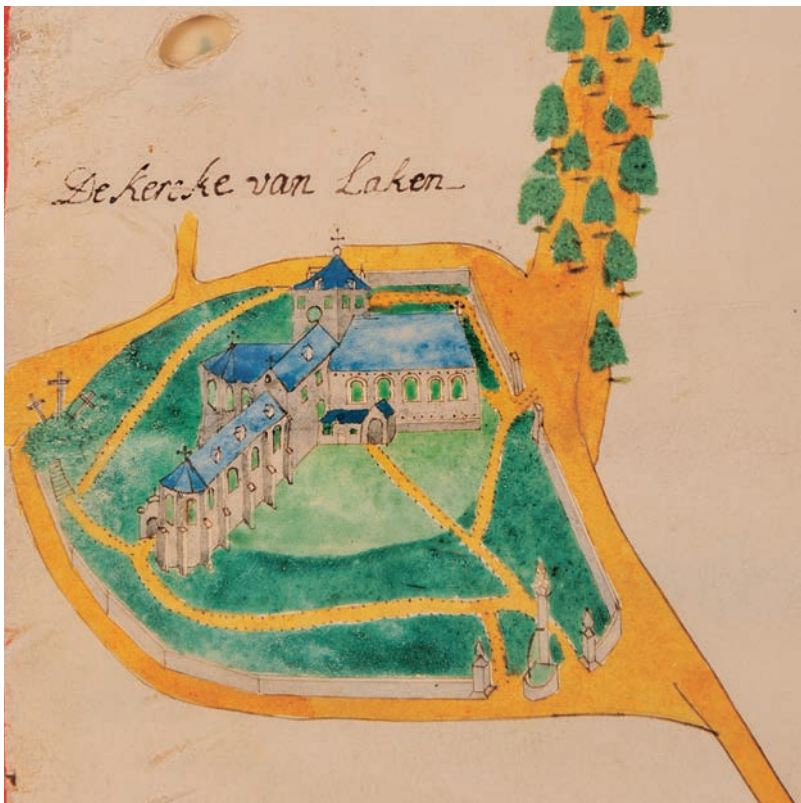 De Kercke van Laken